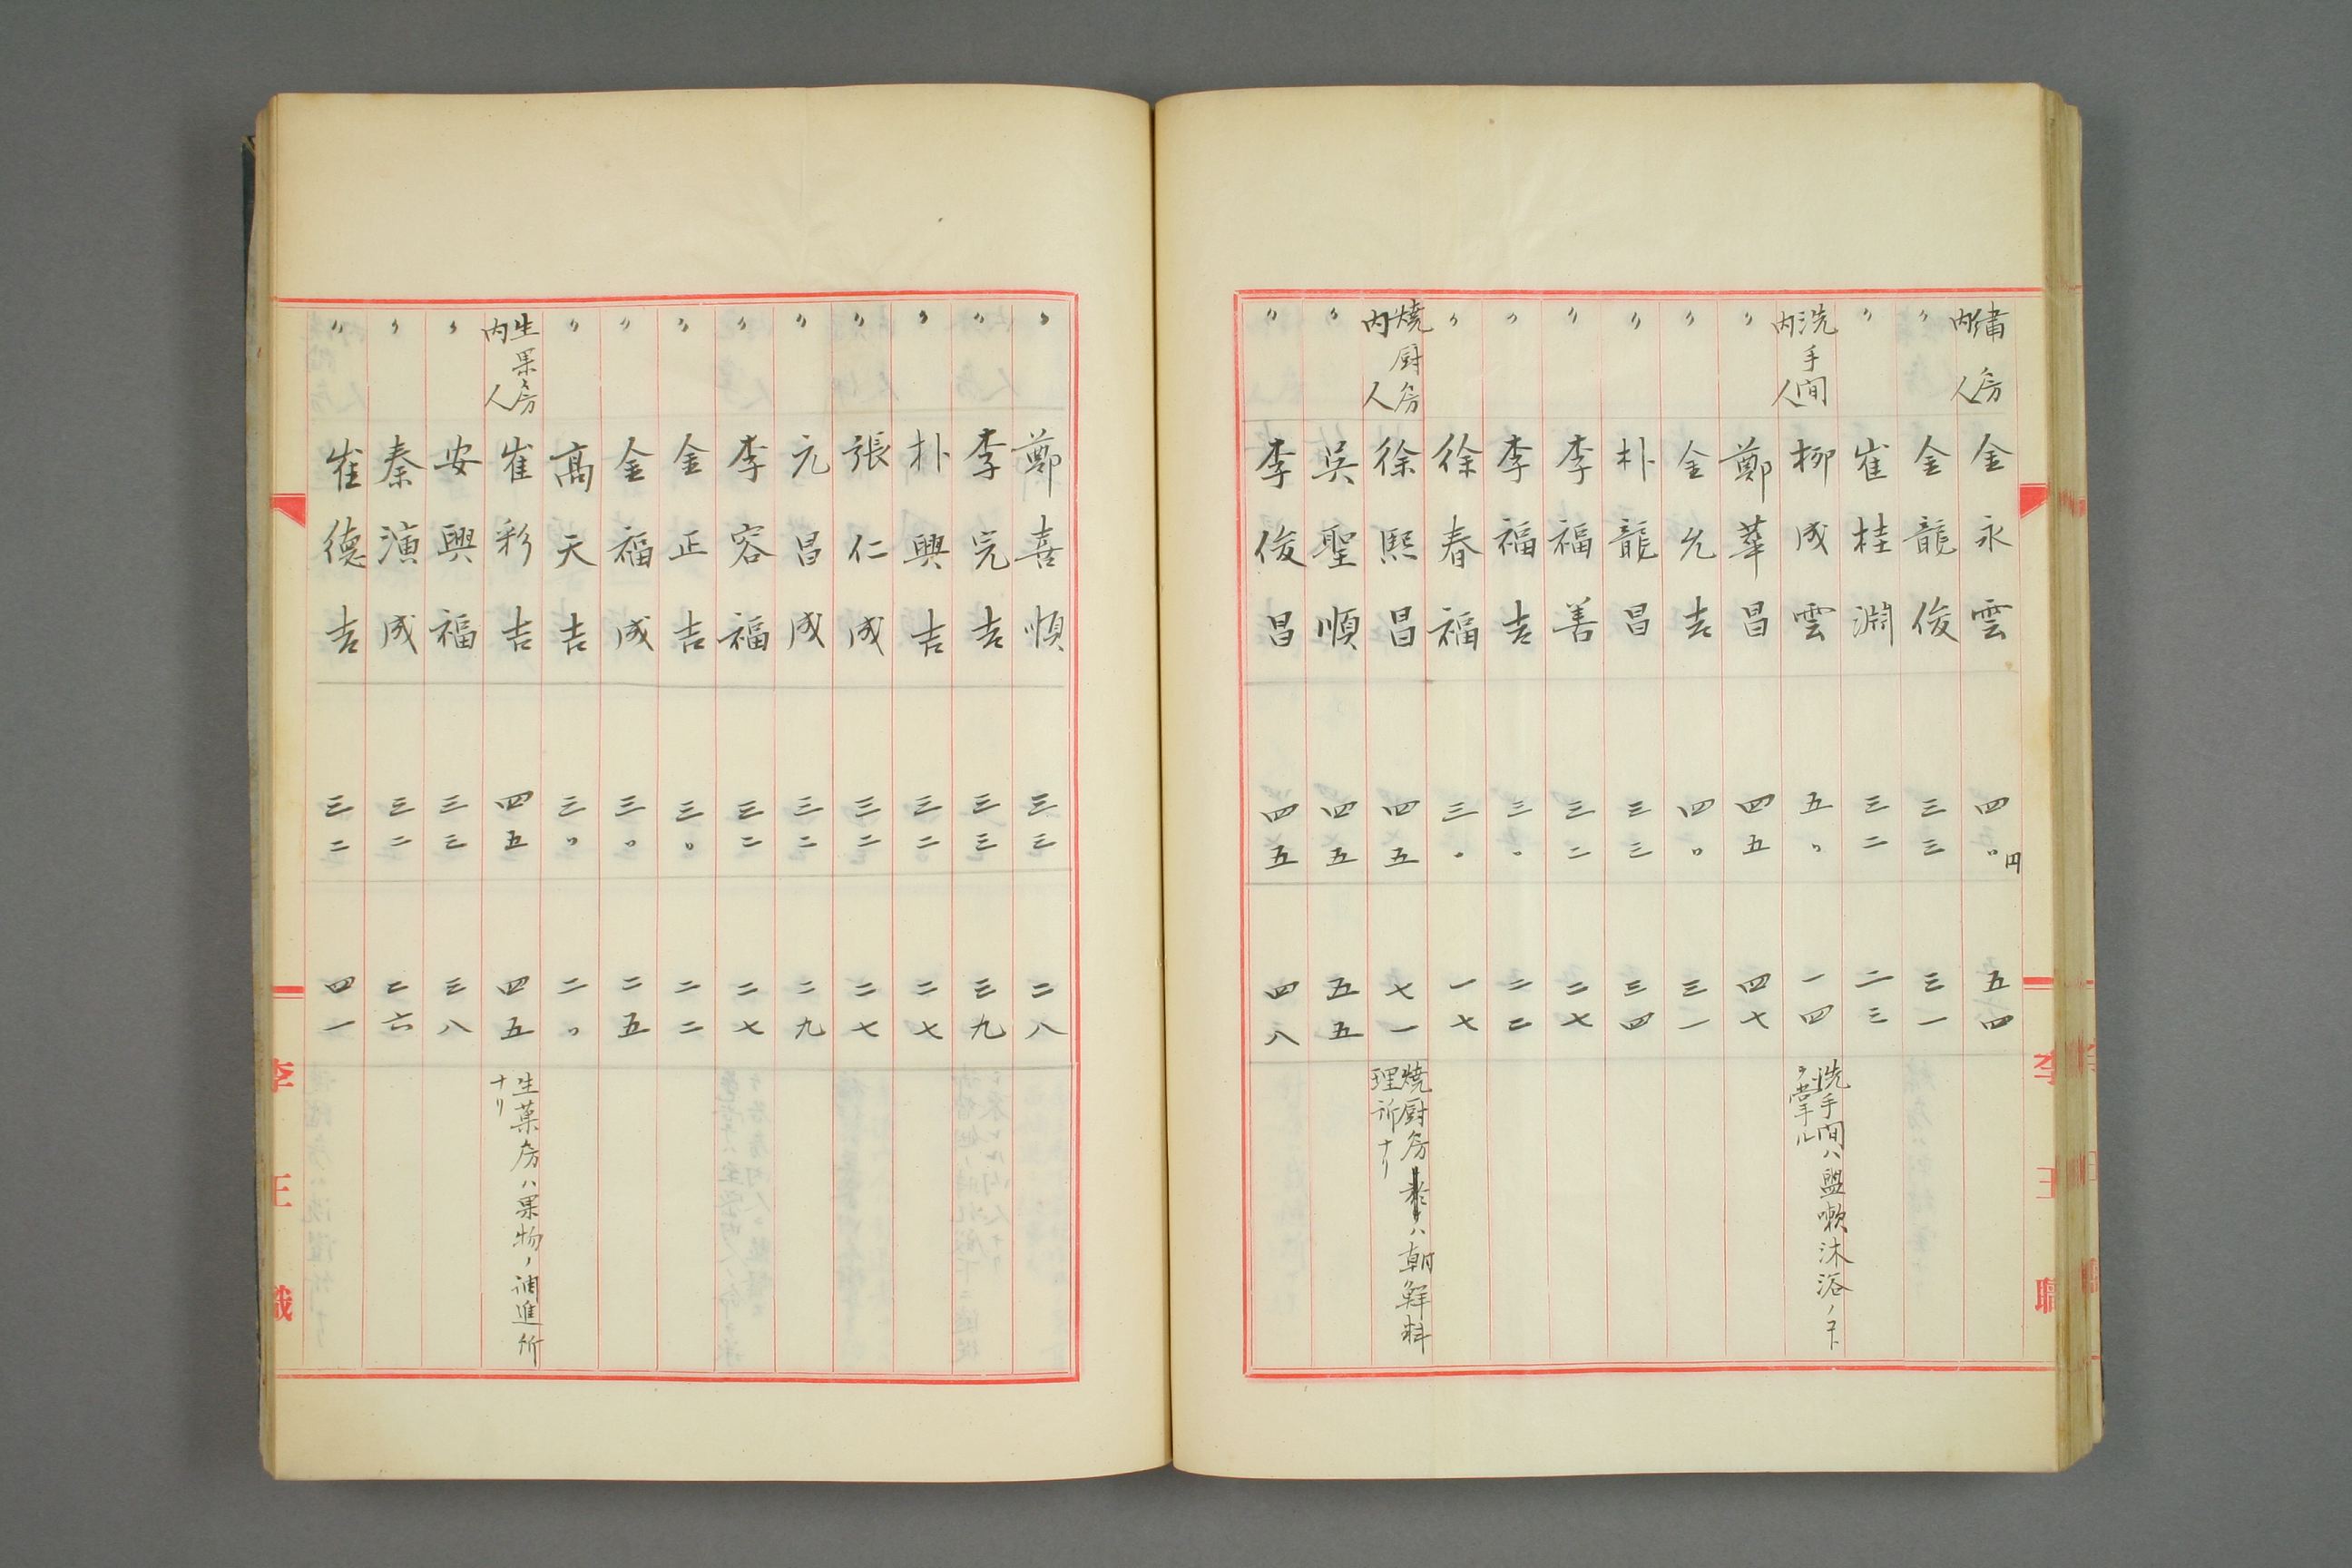 繍房内人 金永雲 四〇円 五四
〃 金龍俊 三三 三一
〃 崔桂淵 三二 二三
洗手間内人 柳成雲 五〇 一四 洗手間ハ盥嗽沐浴ノコトヲ掌ル
〃 鄭華昌 四五 四七
〃 金允吉 四〇 三一
〃 朴龍昌 三三 三四
〃 李福善 三二 二七
〃 李福吉 三〇 二二
〃 徐春福 三〇 一七
焼厨房内人 徐熙昌 四五 七一 焼厨房ハ朝鮮料理所ナリ
〃 吳聖順 四五 五五
〃 李俊昌 四五 四八
李王職
〃 鄭喜順 三三 二八
〃 李完吉 三三 三九
〃 朴興吉 三二 二七
〃 張仁成 三二 二七
〃 元昌成 三二 二九
〃 李容福 三二 二七
〃 金正吉 三〇 二二
〃 金福成 三〇 二五
〃 高天吉 三〇 二〇
生果房内人 崔彩吉 四五 四五 生菓房ハ果物ノ調進所ナリ
〃 安興福 三三 三八
〃 秦演成 三二 二六
〃 崔德吉 三二 四一
李王職